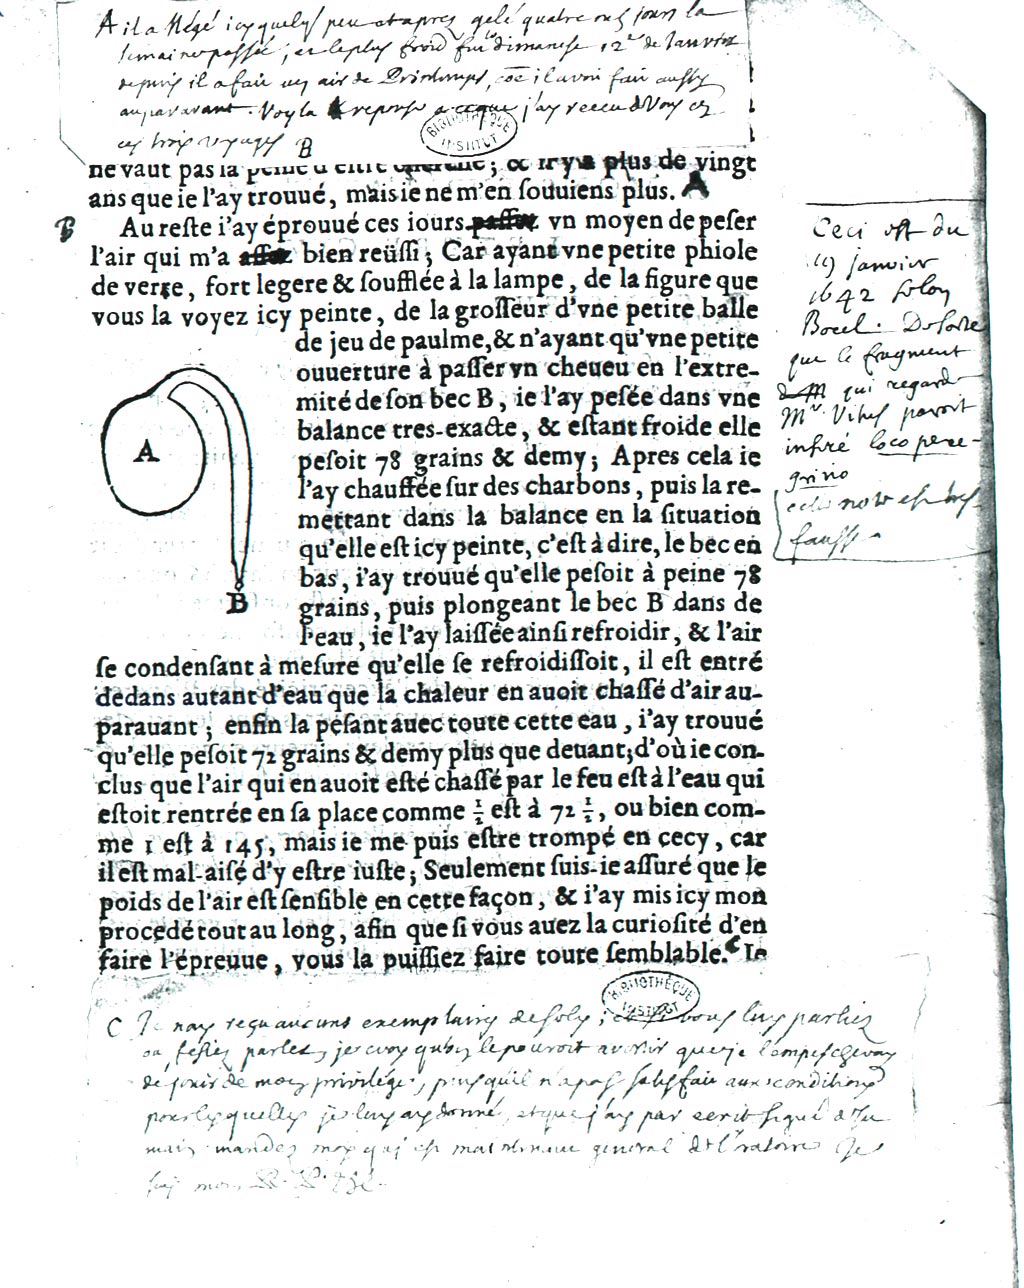 A il a négé icy quelque peu et apres gelé quatre ou 5 jours la
semaine passée, et le plus froid fut le dimanche 12e de Janvier
depuis il a fait un air de Printemps, cõe il avoit fait aussy
auparavant. Voyla reponse a ce que j'ay receu de Vous en
ces trois voyages B
BIBLIOTHÈQUE
INSTITUT
ne vaut pas la peine d'estre ; & il y a plus de vingt
ans que ie l'ay trouué, mais ie ne m'en souuiens plus. A
B Au reste i'ay éprouué ces iours passez vn moyen de peser
l'air qui m'a assez bien reüssi; Car ayant vne petite phiole
de verre, fort legere & soufflée à la lampe, de la figure que
vous la voyez icy peinte, de la grosseur d'vne petite balle
de jeu de paulme, & n'ayant qu'vne petite
ouuerture à passer vn cheueu en l'extre-
mité de son bec B, ie l'ay pesée dans vne
balance tres-exacte, & estant froide elle
pesoit 78 grains & demy; Apres cela ie
l'ay chauffée sur des charbons, puis la re-
mettant dans la balance en la situation
qu'elle est icy peinte, c'est à dire, le bec en
bas, i'ay trouué qu'elle pesoit à peine 78
grains, puis plongeant le bec B dans de
l'eau, ie l'ay laissée ainsi refroidir, & l'air
A
B
se condensant à mesure qu'elle se refroidissoit, il est entré
dedans autant d'eau que la chaleur en auoit chassé d'air au-
parauant; enfin la pesant auec toute cette eau, i'ay trouué
qu'elle pesoit 72 grains & demy plus que deuant; d'où ie con-
clus que l'air qui en auoit esté chassé par le feu est à l'eau qui
estoit rentrée en sa place comme ½ est à 72 ½, ou bien com-
me 1 est à 145, mais ie me puis estre trompé en cecy, car
il est mal-aisé d'y estre iuste; Seulement suis-ie assuré que le
poids de l'air est sensible en cette façon, & i'ay mis icy mon
procedé tout au long, afin que si vous auez la curiosité d'en
faire l'épreuue, vous la puissiez faire toute semblable. c Ie
Ceci est du
19 janvier
1642
que le fragment
de M qui regarde
Mr. pavoit
inséré loco pere-
grino
cete note est tres
fausse
BIBLIOTHÈQUE
INSTITUT
C Je n'ay reçu aucuns exemplaires de Soly; et si vous luy parliez
ou fesiez parler, je croy qu'on le pouroit avertir que je l'empescheray
de jouir de mon privilége, puis qu'il n'a pas satisfait aux conditions
pour lesquelles je luy ay donné, et que j'ay par ecrit signé de luy
mais mandez moy qui est maintenant general de l'oratoire Je
suis mon R. P.